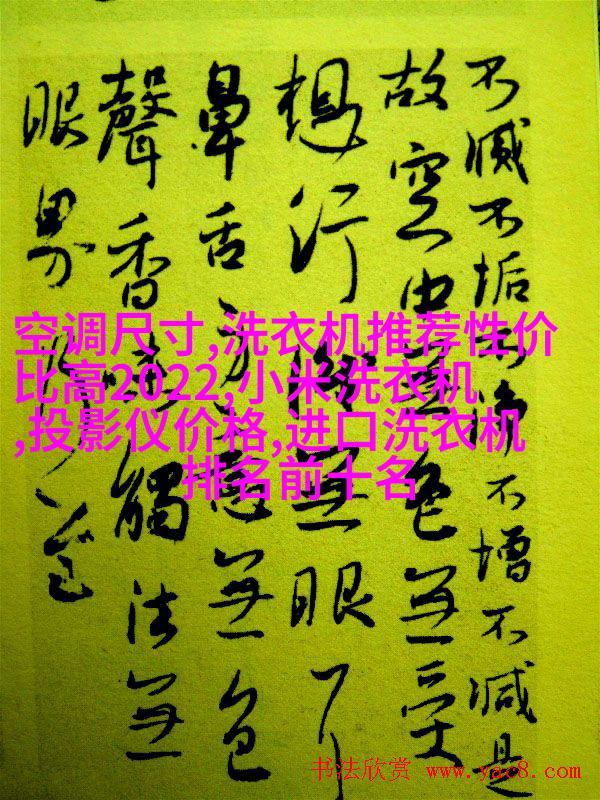 不滅不垢不淨不增不減是
故空中無色無受
想行識無眼耳
鼻舌身意無色
聲香味觸法無
眼界
空调尺寸,洗衣机推荐性价
比高2022,小米洗衣机
,投影仪价格,进口洗衣机
排名前十名
书法欣赏 www.yac8.com